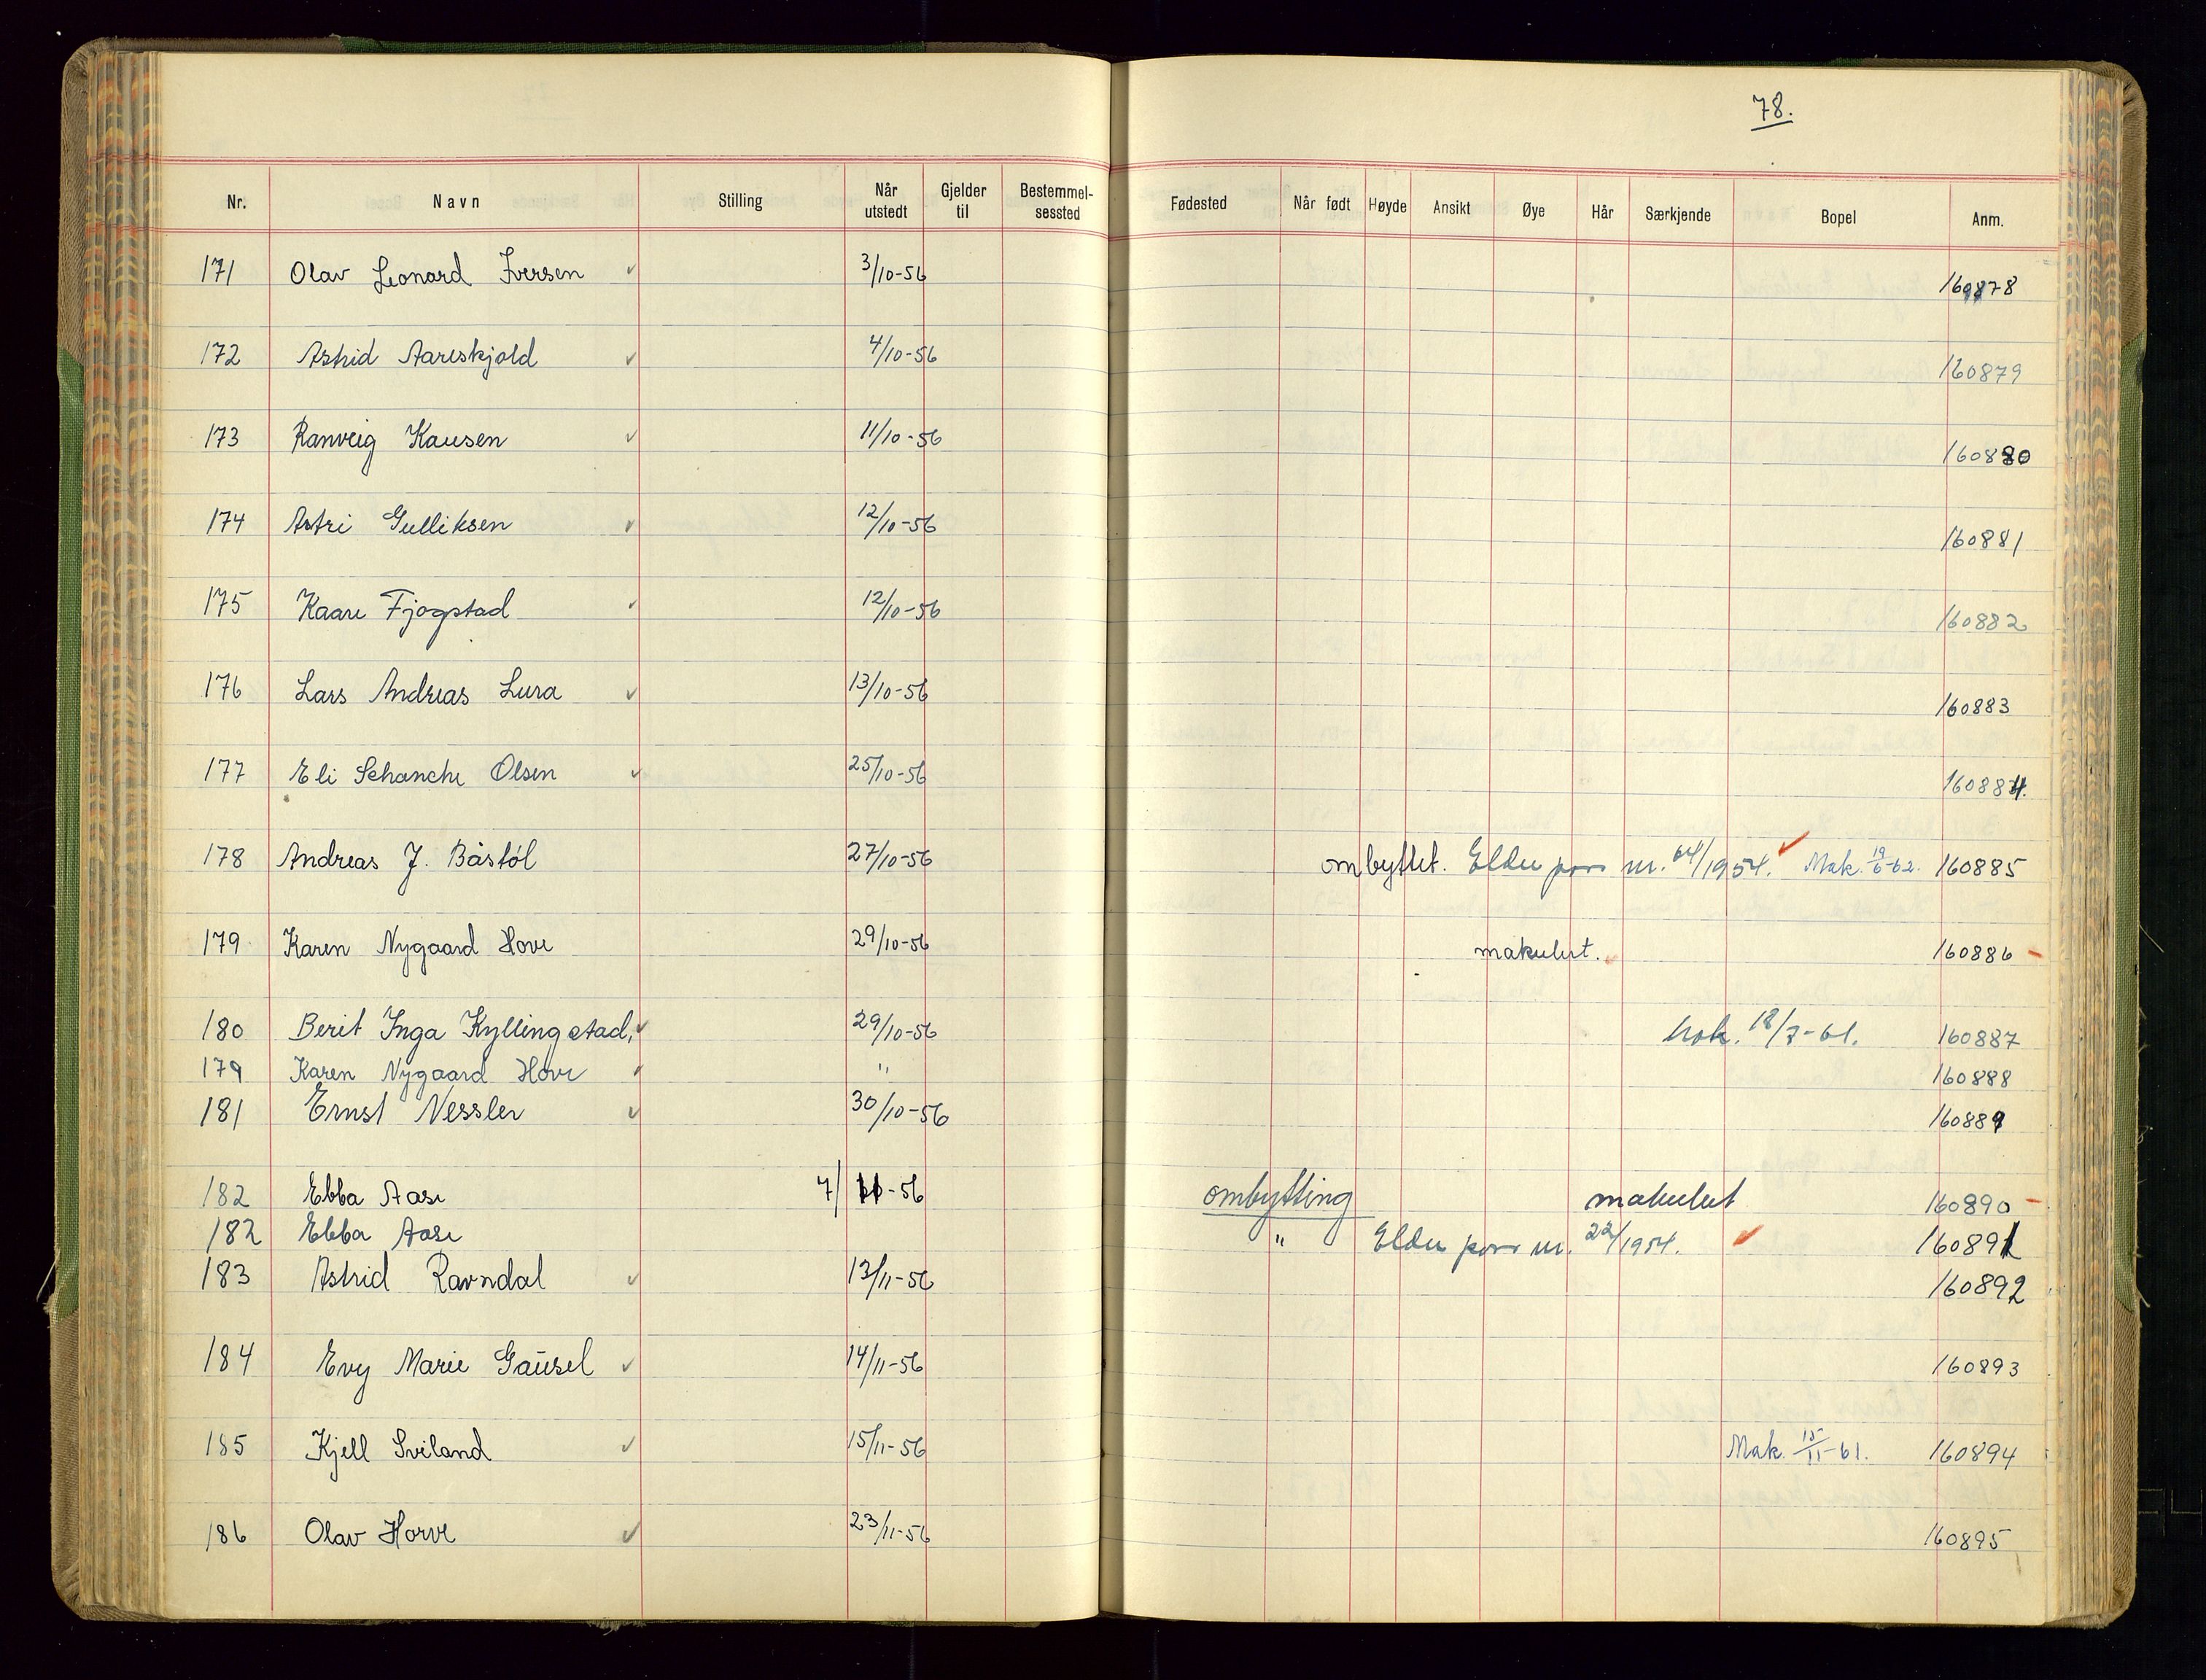 78.
Nr. Navn Stilling Når utstedt Gjelder til Bestemmel-sessted Fødested Når født Høyde Ansikt Øye Hår Særkjende Bopel Anm.
171 Olav Leonard Iversen ✓ 3/10-56 160878
172 Astrid Aareskjold ✓ 4/10-56 160879
173 Ranveig Kausen ✓ 11/10-56 160880
174 Astri Gulliksen ✓ 12/10-56 160881
175 Kaare Fjogstad ✓ 12/10-56 160882
176 Lars Andreas Lura ✓ 13/10-56 160883
177 Eli Schanche Olsen ✓ 25/10-56 160884.
178 Andreas J. Båstøl 27/10-56 ombyttet. Eldre pass nr. 64/1954. ✓ Mak. 19/6-62. 160885
179 Karen Nygaard Hove 29/10-56 makulert. 160886 -
180 Berit Inga Kyllingstad, ✓ 29/10-56 Mak. 18/3-61. 160887
179 Karen Nygaard Hove ✓ " 160888
181 Ernst Nessler ✓ 30/10-56 160889
182 Ebba Aase 7/11-56 ombytting makulert 160890 -
182 Ebba Aase " Eldre pass nr. 22/1954. ✓ 160891
183 Astrid Ravndal ✓ 13/11-56 160892
184 Evy Marie Gausel ✓ 14/11-56 160893
185 Kjell Sviland ✓ 15/11-56 Mak. 15/11-61. 160894
186 Olav Horve ✓ 23/11-56 160895